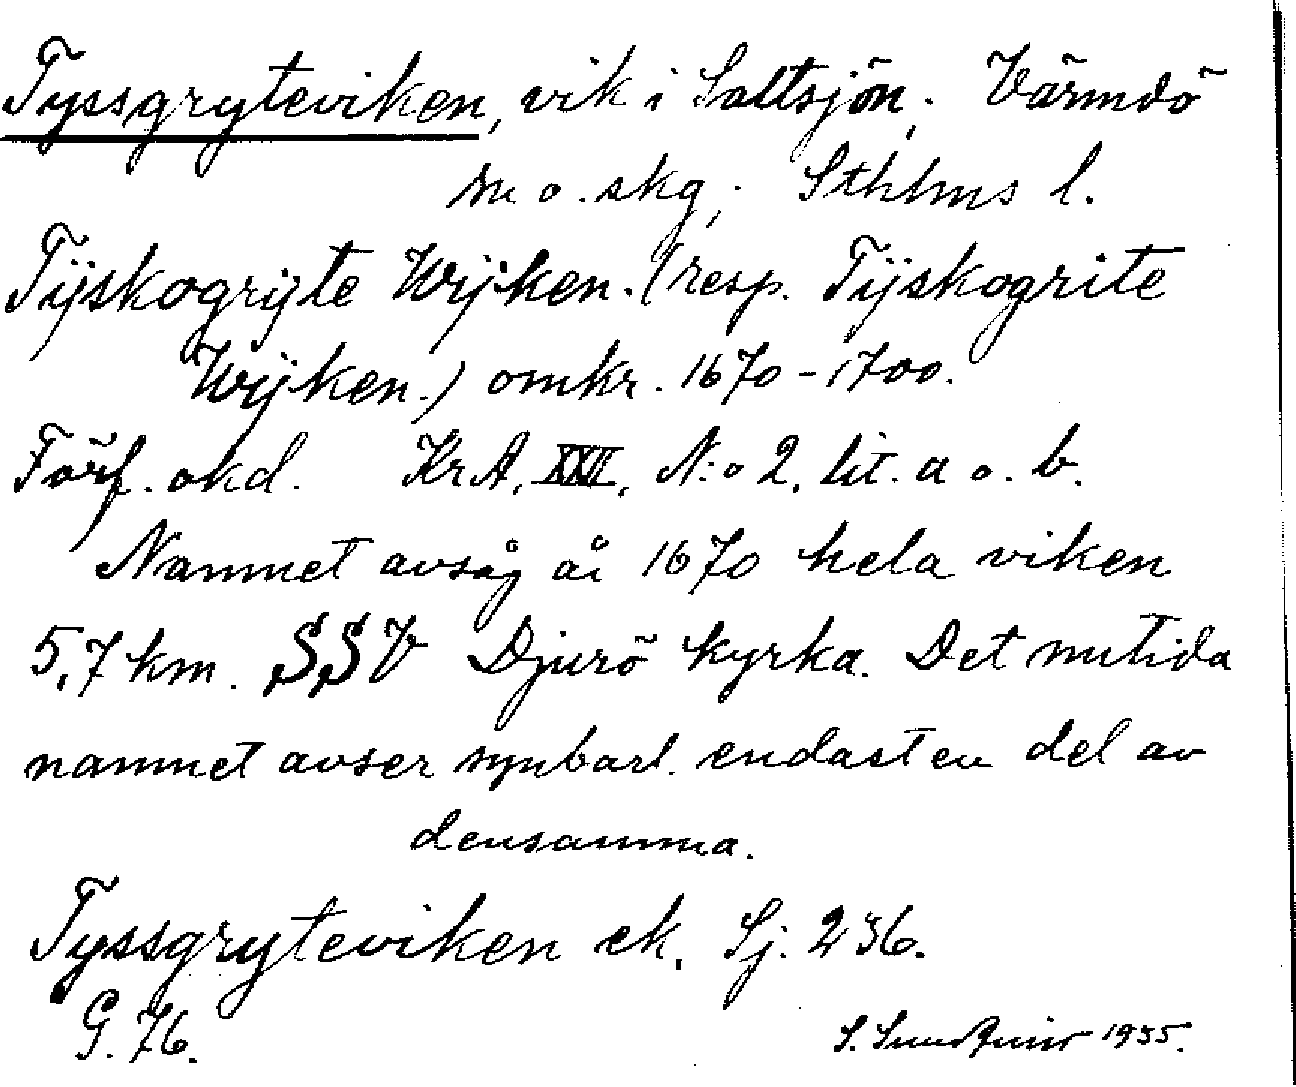 Tyssgryteviken, vik i Saltsjön; Värmdö
sn o. skg; Sthlms l.
Tÿskogrÿte Wÿken. (resp. Tÿskogrite
Wÿken.) omkr. 1670-1700.
Förf. okd. KrA, XXII, N:o 2, lit. a o. b.
Namnet avsåg år 1670 hela viken
5,7 km. SSV Djurö kyrka. Det nutida
namnet avser synbarl. endast en del av
densamma.
Tyssgryteviken ek, Sj. 236.
G. 76.
S. 1935.